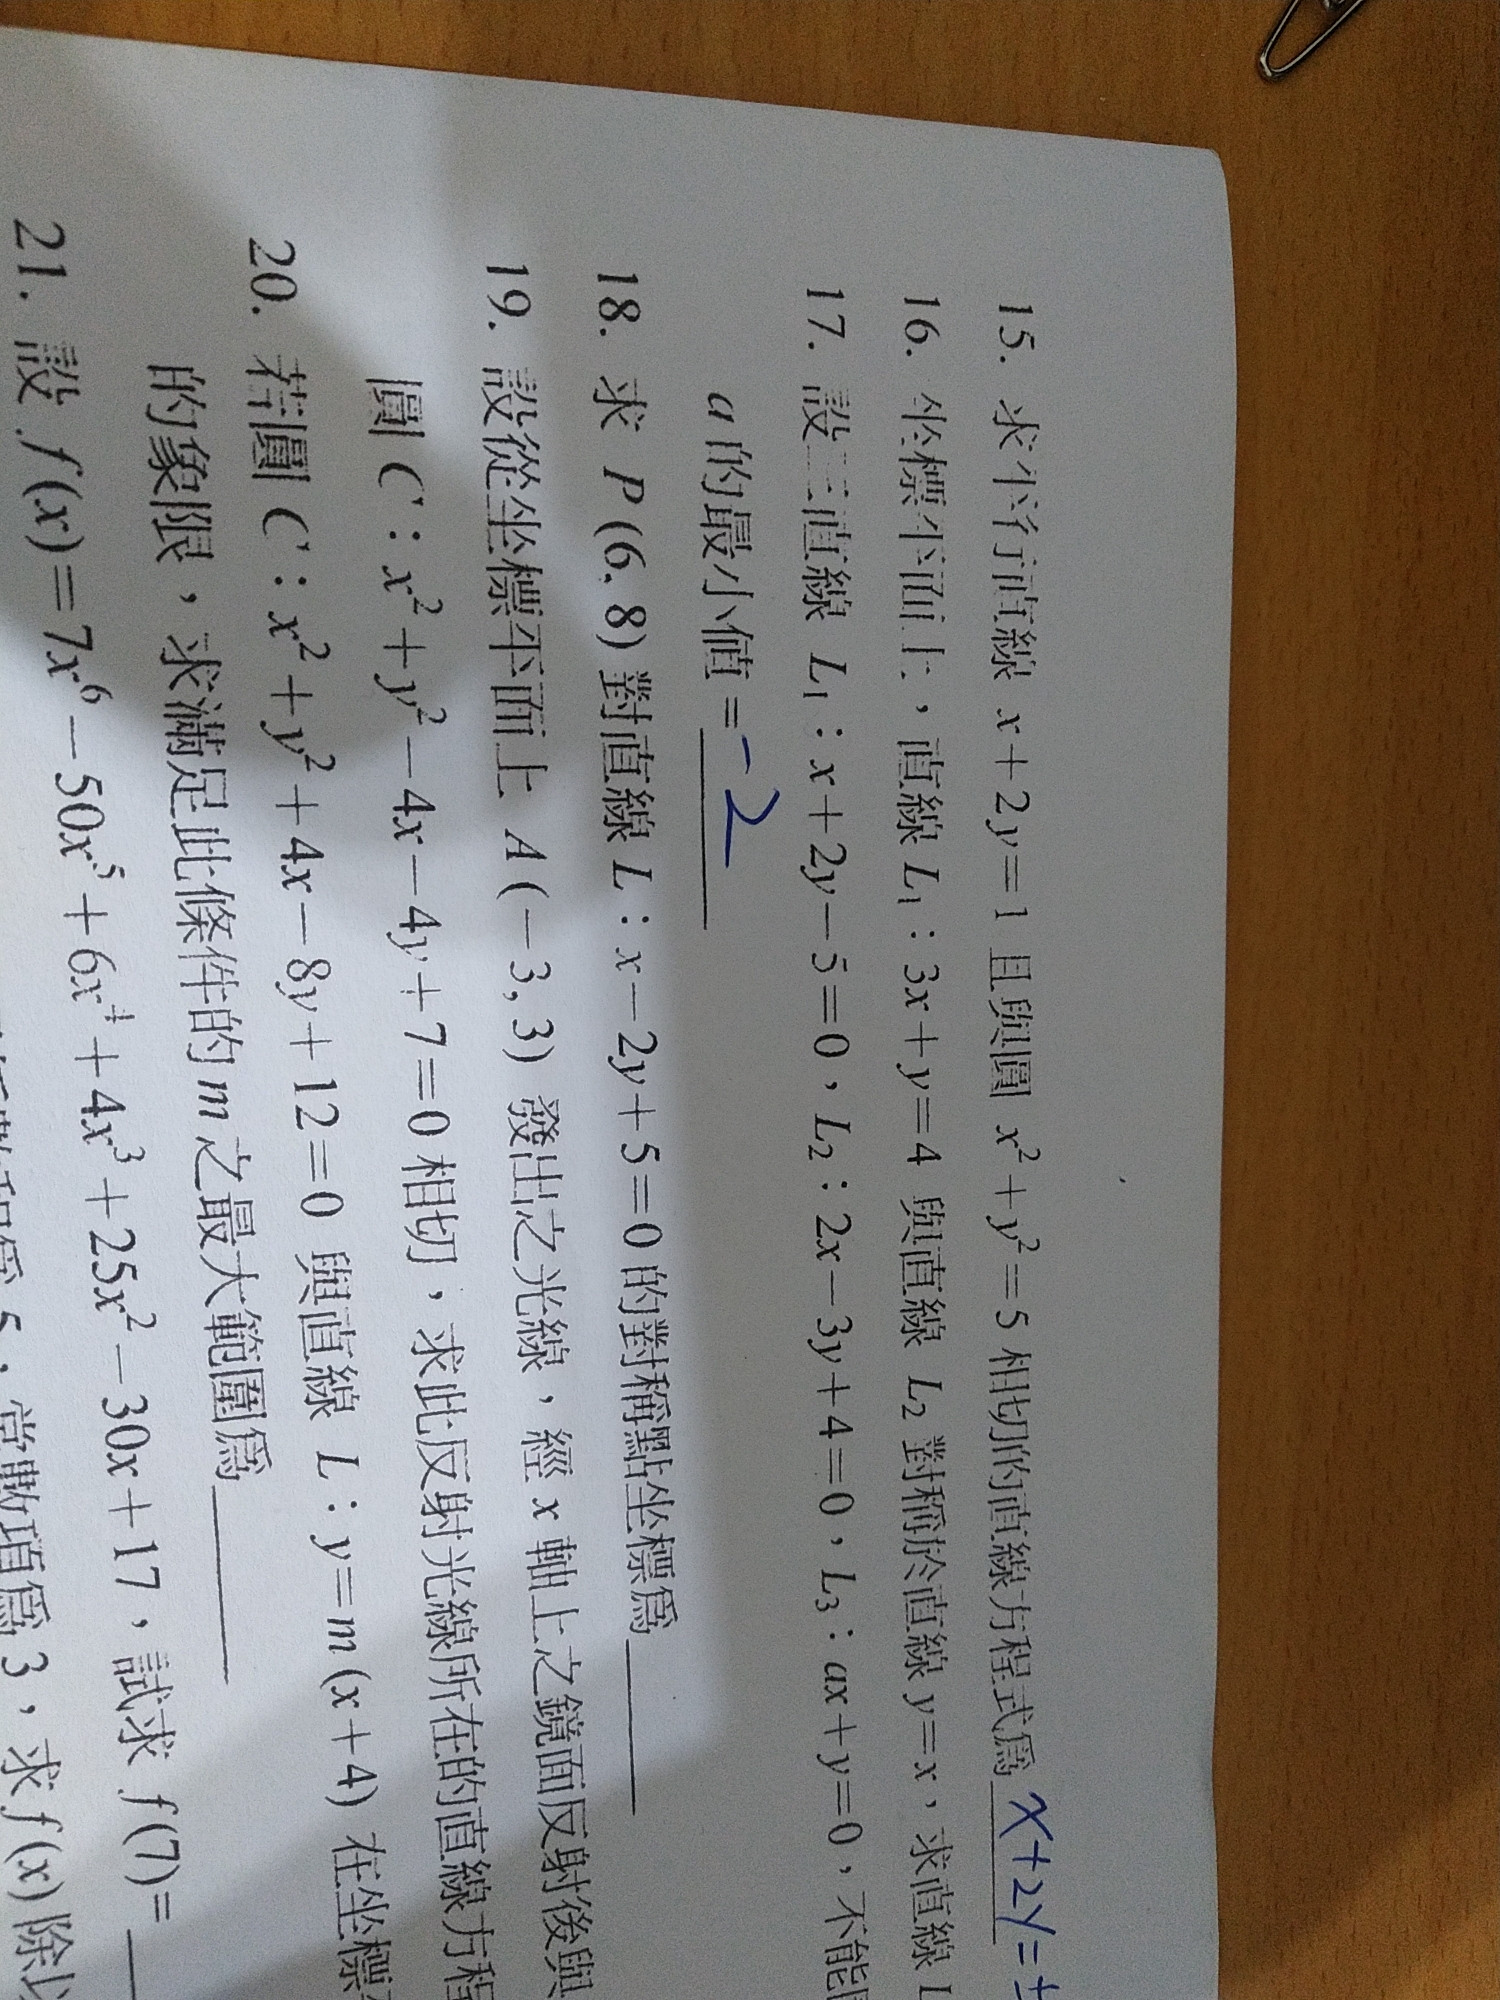 15. 求平行直線 x+2y=1 且與圓 x²+y²=5 相切的直線方程式為 x+2y=±
16. 坐標平面上，直線 L₁：3x+y=4 與直線 L₂ 對稱於直線 y=x，求直線 L
17. 設三直線 L₁：x+2y−5=0，L₂：2x−3y+4=0，L₃：ax+y=0，不能
a 的最小值=−2
18. 求 P(6, 8) 對直線 L：x−2y+5=0 的對稱點坐標為
19. 設從坐標平面上 A(−3, 3) 發出之光線，經 x 軸上之鏡面反射後與
圓 C：x²+y²−4x−4y+7=0 相切，求此反射光線所在的直線方程
20. 若圓 C：x²+y²+4x−8y+12=0 與直線 L：y=m(x+4) 在坐標
的象限，求滿足此條件的 m 之最大範圍為
21. 設 f(x)=7x⁶−50x⁵+6x⁴+4x³+25x²−30x+17，試求 f(7)=
5，常數項為 3，求 f(x) 除以